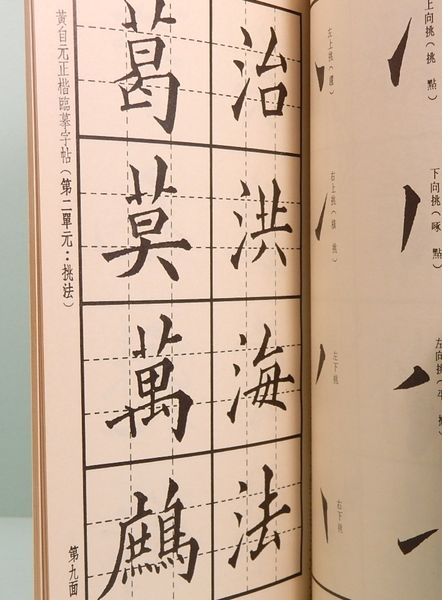 上向挑(挑點)
下向挑(啄點)
左向挑
左上挑
右上挑
左下挑
右下挑
治洪海法
葛莫萬鷓
黃自元正楷臨摹字帖(第二單元:挑法)
第九面